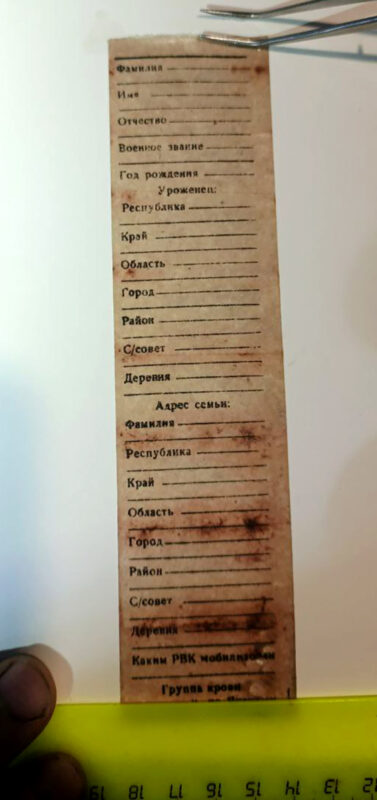 Фамилия
Имя
Отчество
Военное звание
Год рождения
Уроженец:
Республика
Край
Область
Город
Район
С/совет
Деревня
Адрес семьи:
Фамилия
Республика
Край
Область
Город
Район
С/совет
Деревня
Каким РВК мобилизован
Группа крови
19 18 17 16 15 14 13 12